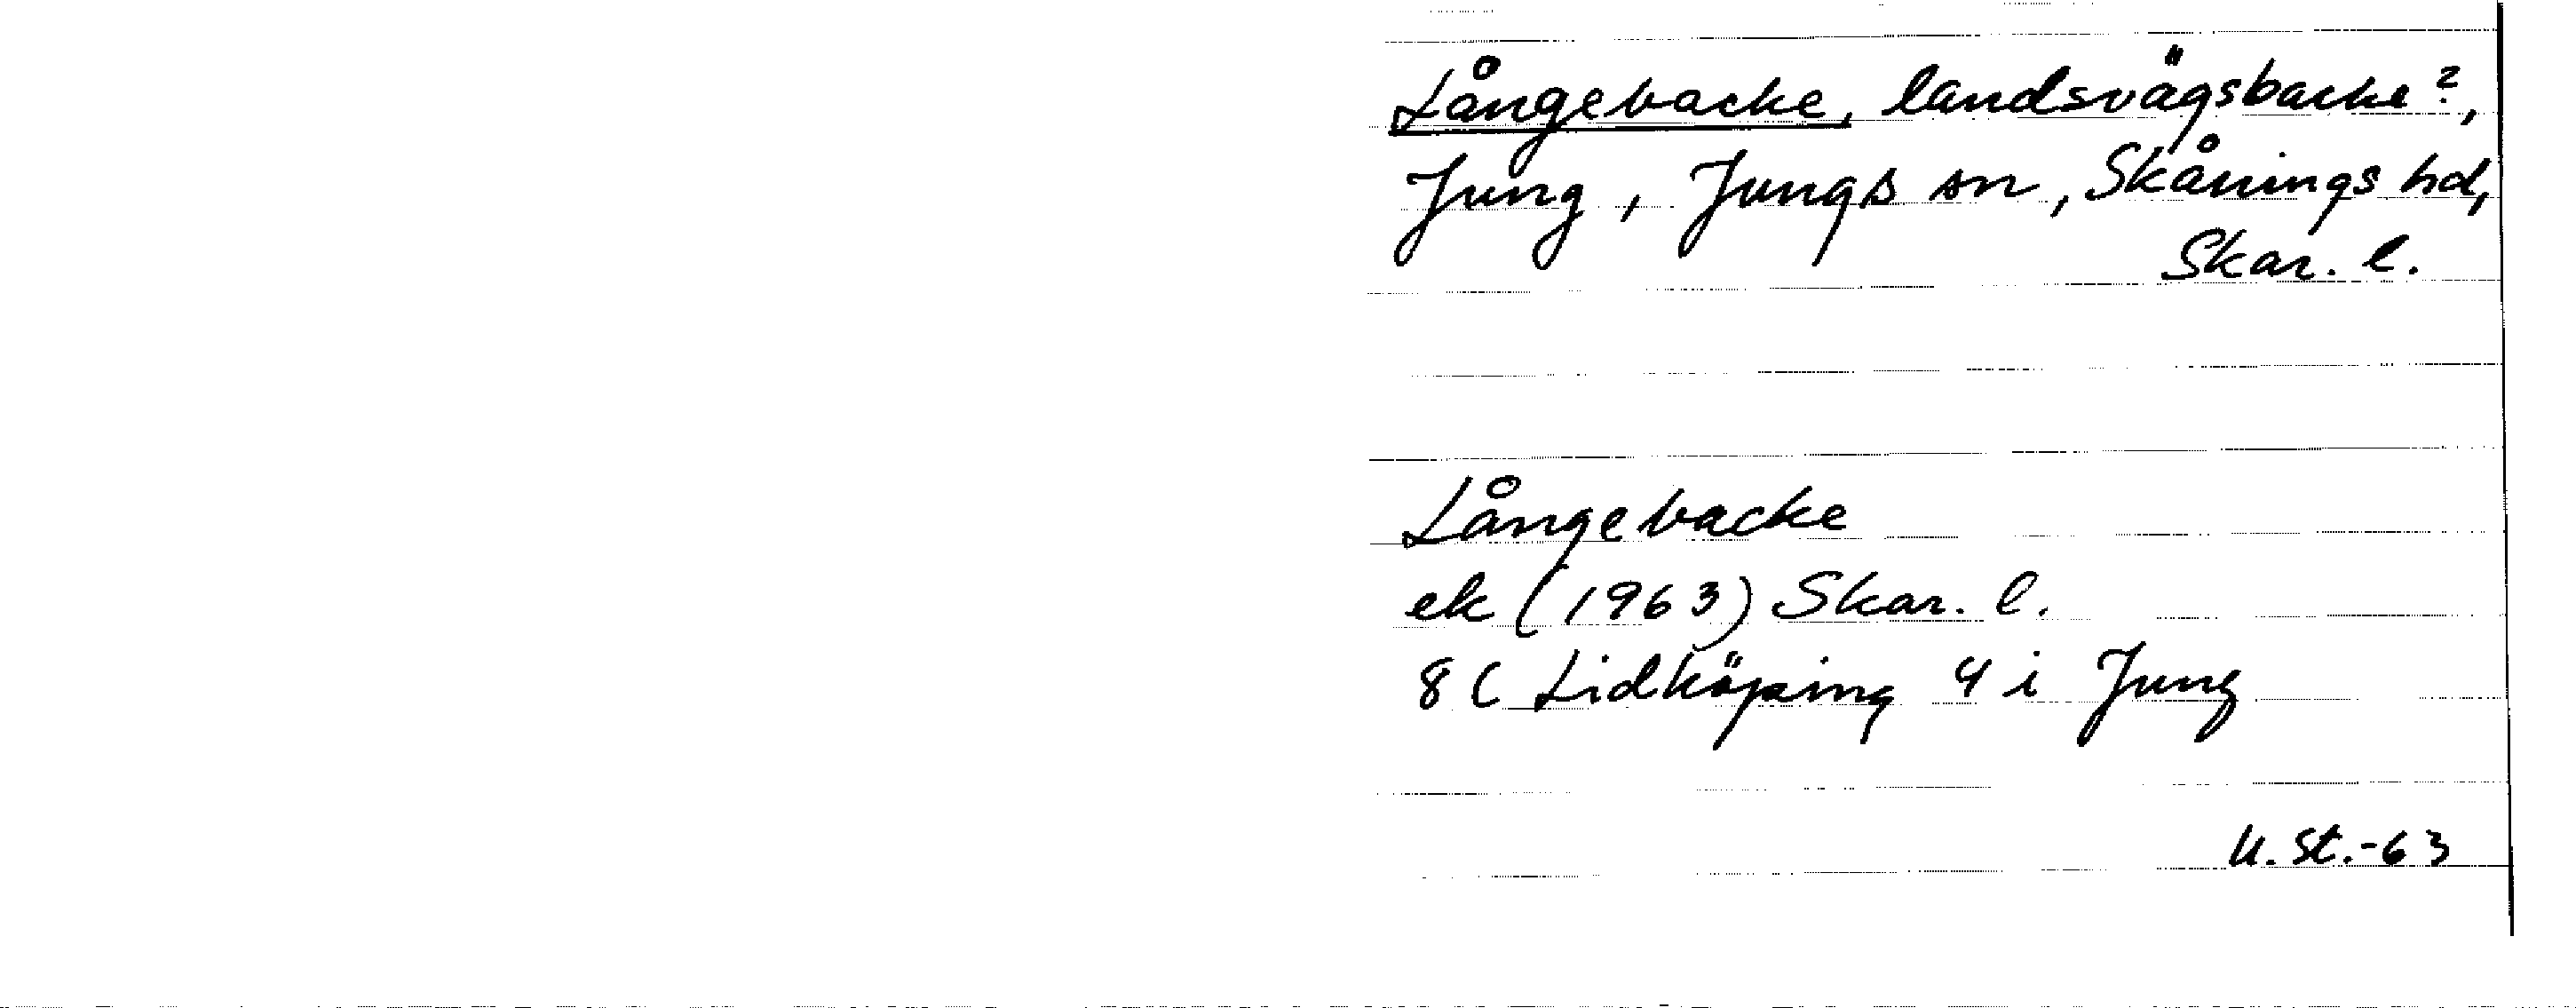 Långebacke, landsvägsbacke?,
Jung, Jungs sn, Skånings hd,
Skar. l.
Långebacke
ek (1963) Skar. l.
8C Lidköping 4 i Jung
U. St.-63